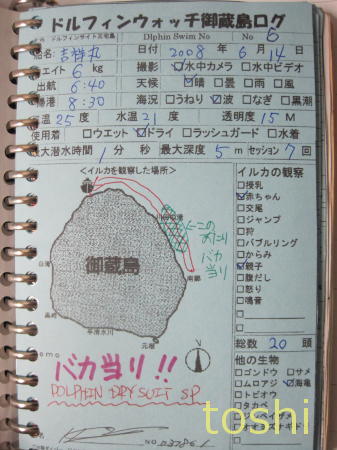 ドルフィンウォッチ御蔵島ログ
ドルフィンサイト三宅島 Dlphin Swim No No 6
船名: 吉祥丸 日付 2008 年 6 月 14 日
ウエイト 6 kg 撮影 ☑水中カメラ □水中ビデオ
出航 6:40 天候 ☑晴 □曇 □雨 □風
帰港 8:30 海況 □うねり ☑波 □なぎ □黒潮
気温 25 度 水温 21 度 透明度 15 M
使用着 □ウエット ☑ドライ □ラッシュガード □水着
最大潜水時間 1 分 秒 最大深度 5 m セッション 7 回
<イルカを観察した場所>
イルカの観察
□授乳
☑赤ちゃん
□交尾
□ジャンプ
□狩
□バブルリング
□からみ
☑親子
□腹だし
□怒り
□鳴音
この
あたり
バカ
当り
御蔵島
南郷
元根
総数 20 頭
バカ当り!!
DOLPHIN DRY SUIT SP
他の生物
□ゴンドウ □サメ
□ムロアジ ☑海亀
□トビウオ
□タカベ
NO.
toshi